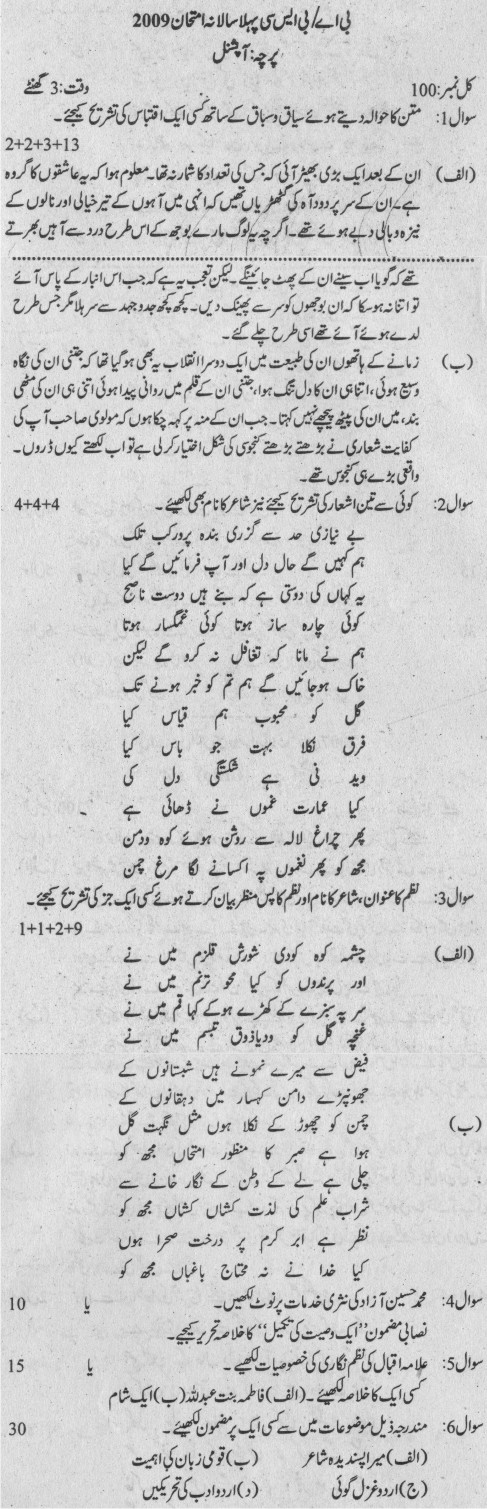 بی اے/بی ایس سی پہلا سالانہ امتحان 2009
پرچہ: آپشنل
کل نمبر: 100 وقت: 3 گھنٹے
سوال 1: متن کا حوالہ دیتے ہوئے سیاق و سباق کے ساتھ کسی ایک اقتباس کی تشریح کیجئے۔
2+2+3+13
(الف) ان کے بعد ایک بڑی بھیڑ آئی کہ جس کی تعداد کا شمار نہ تھا۔ معلوم ہوا کہ یہ عاشقوں کا گروہ
ہے۔ ان کے سر پر دود آہ کی گٹھڑیاں تھیں کہ انہی میں آہوں کے تیر خیالی اور نالوں کے
نیزہ وبالی دبے ہوئے تھے۔ اگرچہ یہ لوگ مارے بوجھ کے اس طرح درد سے آہیں بھرتے
تھے کہ گویا اب سینے ان کے پھٹ جائینگے۔ لیکن تعجب یہ ہے کہ جب اس انبار کے پاس آئے
تو اتنا نہ ہو سکا کہ ان بوجھوں کو سر سے پھینک دیں۔ کچھ کچھ جدوجہد سے سر ہلا مگر جس طرح
لدے ہوئے آئے تھے اسی طرح چلے گئے۔
(ب) زمانے کے ہاتھوں ان کی طبیعت میں ایک دوسرا انقلاب یہ بھی ہو گیا تھا کہ جتنی ان کی نگاہ
وسیع ہوئی، اتنا ہی ان کا دل تنگ ہوا، جتنی ان کے قلم میں روانی پیدا ہوئی اتنی ہی ان کی مٹھی
بند، میں ان کی پیٹھ پیچھے نہیں کہتا۔ جب ان کے منہ پر کہہ چکا ہوں کہ مولوی صاحب آپ کی
کفایت شعاری نے بڑھتے بڑھتے کنجوسی کی شکل اختیار کر لی ہے تو اب لکھتے کیوں ڈروں۔
واقعی بڑے ہی کنجوس تھے۔
سوال 2: کوئی سے تین اشعار کی تشریح کیجئے نیز شاعر کا نام بھی لکھیئے۔ 4+4+4
بے نیازی حد سے گزری بندہ پرور کب تلک
ہم کہیں گے حال دل اور آپ فرمائیں گے کیا
یہ کہاں کی دوستی ہے کہ بنے ہیں دوست ناصح
کوئی چارہ ساز ہوتا کوئی غمگسار ہوتا
ہم نے مانا کہ تغافل نہ کرو گے لیکن
خاک ہو جائیں گے ہم تم کو خبر ہونے تک
گل کو محبوب ہم قیاس کیا
فرق نکلا بہت جو باس کیا
دید نی ہے شکستگی دل کی
کیا عمارت غموں نے ڈھائی ہے
پھر چراغ لالہ سے روشن ہوئے کوہ و دمن
مجھ کو پھر نغموں پہ اکسانے لگا مرغ چمن
سوال 3: نظم کا عنوان، شاعر کا نام اور نظم کا پس منظر بیان کرتے ہوئے کسی ایک جز کی تشریح کیجئے۔
1+1+2+9
(الف) چشمہ کوہ کو دی شورش قلزم میں نے
اور پرندوں کو کیا محو ترنم میں نے
سر پہ سبزے کے کھڑے ہو کے کہا قم میں نے
غنچہ گل کو دیا ذوق تبسم میں نے
فیض سے میرے نمونے ہیں شبستانوں کے
جھونپڑے دامن کہسار میں دہقانوں کے
(ب) چمن کو چھوڑ کے نکلا ہوں مثل نگہت گل
ہوا ہے صبر کا منظور امتحاں مجھ کو
چلی ہے لے کے وطن کے نگار خانے سے
شراب علم کی لذت کشاں کشاں مجھ کو
نظر ہے ابر کرم پر درخت صحرا ہوں
کیا خدا نے نہ محتاج باغباں مجھ کو
سوال 4: محمد حسین آزاد کی نثری خدمات پر نوٹ لکھیں۔ یا 10
نصابی مضمون "ایک وصیت کی تکمیل" کا خلاصہ تحریر کیجیے۔
سوال 5: علامہ اقبال کی نظم نگاری کی خصوصیات لکھیے۔ یا 15
کسی ایک کا خلاصہ لکھیئے۔ (الف) فاطمہ بنت عبداللہ (ب) ایک شام
سوال 6: مندرجہ ذیل موضوعات میں سے کسی ایک پر مضمون لکھیئے۔ 30
(الف) میرا پسندیدہ شاعر (ب) قومی زبان کی اہمیت
(ج) اردو غزل گوئی (د) اردو ادب کی تحریکیں